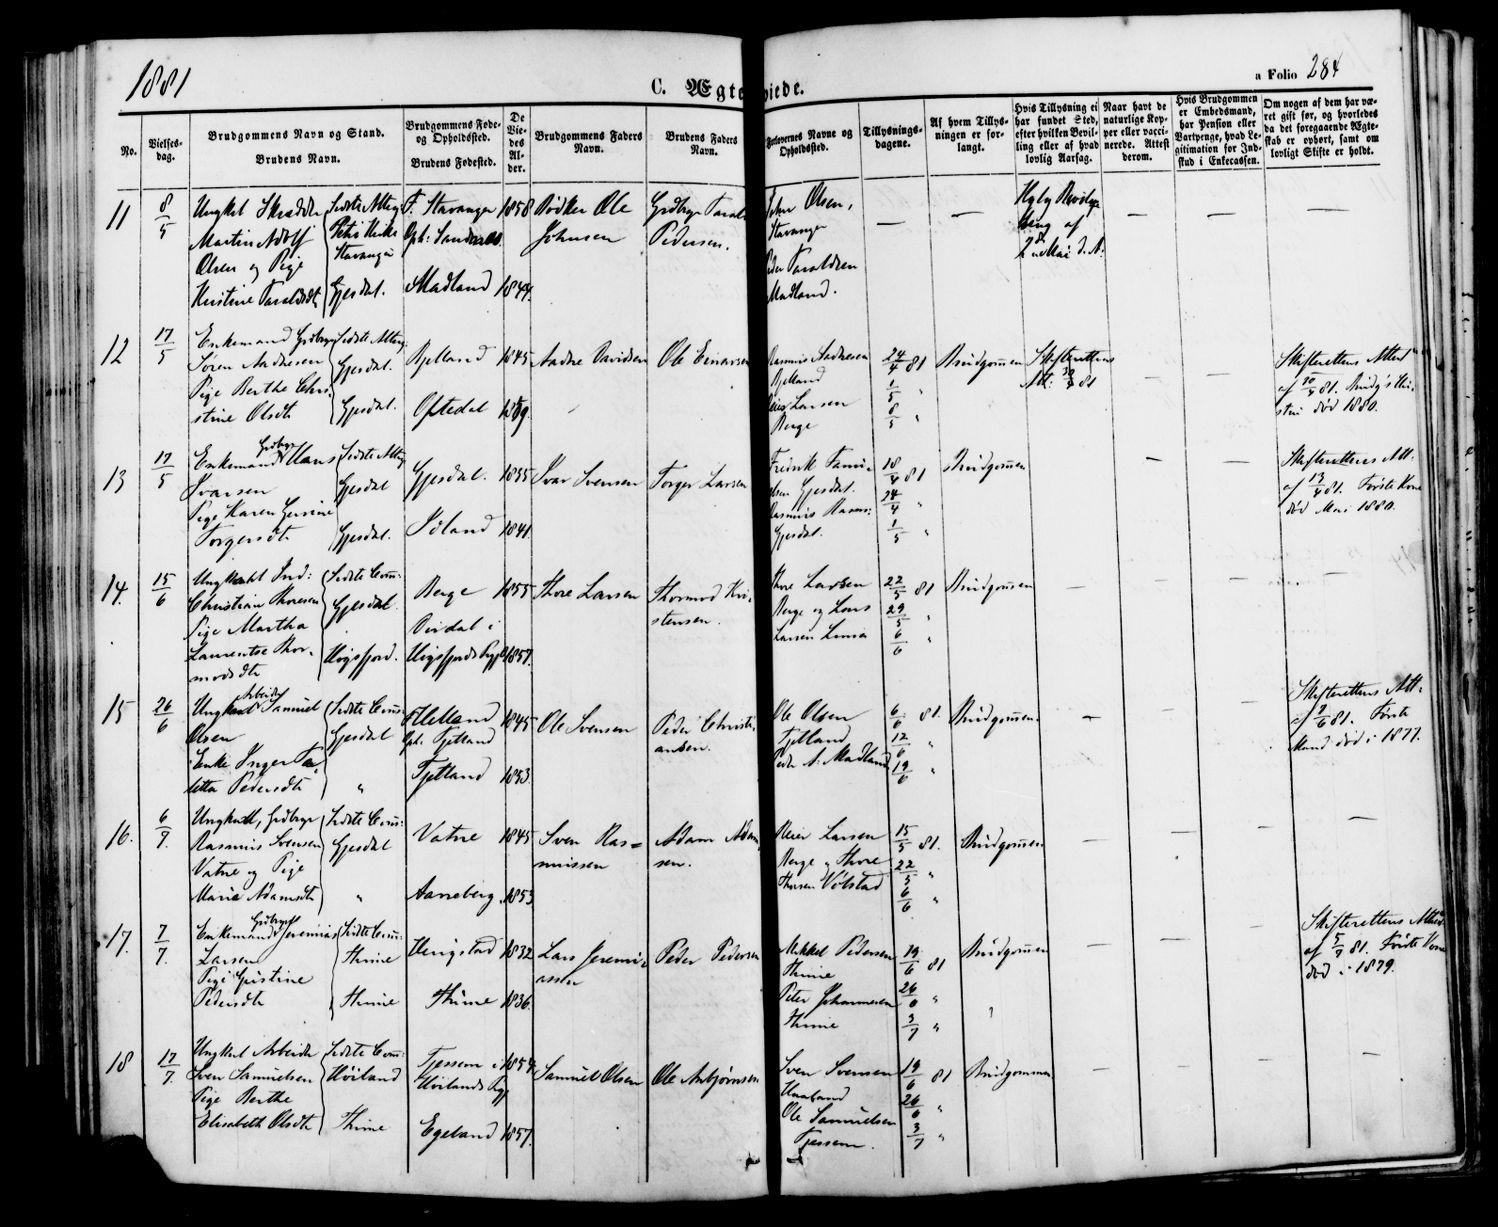 1881
C. Ægteviede.
a Folio 284
No.
Vielses-
dag.
Brudgommens Navn og Stand.
Brudens Navn.
Brudgommens Føde-
og Opholdssted.
Brudens Fødested.
De
Vie-
des
Al-
der.
Brudgommens Faders
Navn.
Brudens Faders
Navn.
Forlovernes Navne og
Opholdssted.
Tillysnings-
dagene.
Af hvem Tillys-
ningen er for-
langt.
Hvis Tillysning ei
har fundet Sted,
efter hvilken Bevil-
ling eller af hvad
lovlig Aarsag.
Naar havt de
naturlige Kop-
per eller vacci-
nerede. Attest
derom.
Hvis Brudgommen
er Embedsmand,
har Pension eller
Vartpenge, hvad Le-
gitimation for Ind-
skud i Enkecassen.
Om nogen af dem har væ-
ret gift før, og hvorledes
da det foregaaende Ægte-
skab er ophørt, samt om
lovligt Skifte er holdt.
11
8/5
Ungkal Skrædder
Martin Adolf
Olsen og Pige
Kirstine Taraldsdt
Sidste Alterg
Petri Kirke
Stavanger
Gjesdal.
F. Stavanger
Oph: Sandnes
Madland
1858
1844.
Bødker Ole
Johnsen
Grdbrgr Tarald
Pedersen.
John Olsen,
Stavanger
Peder Taraldsen
Madland.
— —
Kglg Bevilg-
ning af
2den Mai d. A.
— — —
12
17/5
Enkemand Grdbrgr
Søren Aadnesen
Pige Berthe Chri-
stine Olsdt
Sidste Alterg
Gjesdal
Gjesdal.
Bjelland
Oftedal
1845
1859.
Aadne Davidsen
Ole Einarsen
Rasmus Aadnesen
Bjelland
Reier Larsen
Berge
24/4 81
1/5 "
8/5 "
Brudgommen
Skifterettens
Att: 30/4 81
— —
Skifterettens Attest
af 30/4 81. Brudg's Hu-
stru død 1880.
13
17/5
Grdbrgr
Enkemand Hans
Ivarsen
Pige Karen Gurine
Torgersdt
Sidste Alterg
Gjesdal
Gjesdal.
Gjesdal.
Idland
1835
1841
Ivar Svensen
Torger Larsen
Fredrik Tani-
elsen Gjesdal.
Rasmus Rasms:
Gjesdal.
18/4 81
24/4 "
1/5 "
Brudgommen
— —
Skifterettens Att.
af 13/4 81. Første Kone
død Mai 1880.
14.
15/6
Ungkarl Ind:
Christian Thoresen
Pige Martha
Laurentse Thor-
modsdt
Sidste Com:
Gjesdal.
Høgsfjord.
Berge
Dirdal i
Høgsfjords Pgjl
1855
1857.
Thore Larsen
Thormod Kri-
stensen.
Thore Larsen
Berge og Lars
Larsen Limia
22/5 81
29/5 "
6/6 "
Brudgommen
— — — —
15
26/6
Arbeider
Ungkarl Samuel
Olsen
Enke Inger Ta-
letta Pedersdt
Sidste Com:
Gjesdal
"
F. Helland
Oph: Fjelland
Fjelland
1845
1853.
Ole Svensen
Peder Christi-
ansen.
Ole Olsen
Fjelland
Peder A: Madland
6/6 81.
12/6 "
19/6 "
Brudgommen
— — —
Skifterettens Att-
af 7/6 81. Første
Mand død i 1877.
16.
6/7.
Ungkarl, Grdbrgr
Rasmus Svensen
Vatne og Pige
Maria Adamsdt
Sidste Com:
Gjesdal
"
Vatne
Aarreberg
1845
1853
Sven Ras=
mussen
Adam Adam-
sen.
Reier Larsen
Berge, Thore
Thorsen Vølstad
15/5 81.
22/5 "
6/6 "
Brudgommen
— — — —
17.
7/7.
Grdbrgr
Enkemand Jeremias
Larsen
Pige Gjistine
Pedersdt
Sidste Com:
Thime
Thime
Hengstad
Thime
1832
1836.
Lars Jeremi-
assen
Peder Pedersen
Mikkel Pedersen
Thime
Peter Johannesen
Thime
19/6 81
26/6 "
3/7 "
Brudgommen
— — —
Skifterettens Attest
af 5/7 81. Første Kone
død i 1879.
18
17/7.
Ungkarl Arbeider
Sven Samuelsen
Pige Berthe
Elisabeth Olsdt
Sidste Com:
Høiland
Thime
Tjessem i
Høilands Pgj
Egeland
1854
1857.
Samuel Olsen
Ole Asbjørnsen
Sven Svensen
Haaland
Ole Samuelsen
Tjessem.
19/6 81
26/6 "
3/7 "
Brudgommen
— — — —